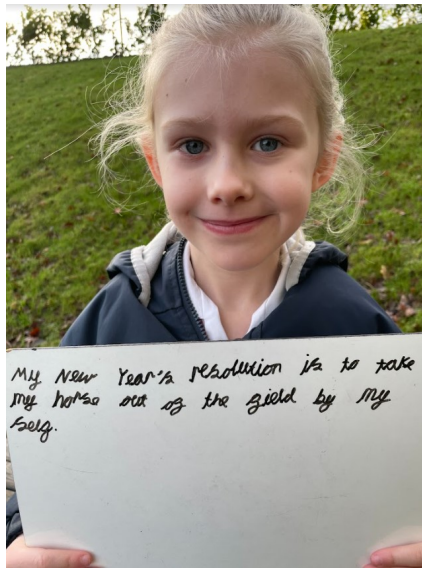 My New Year's resolution is to take
my horse out of the field by my
self.